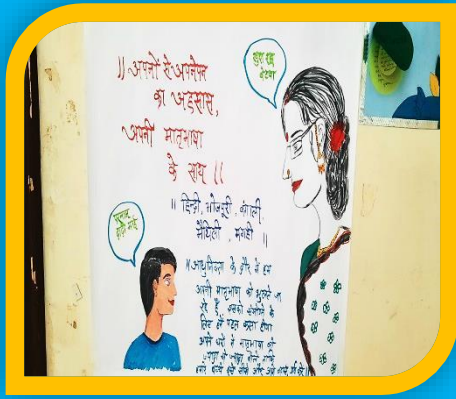 || अपनों से अपनेपन
का अहसास,
अपनी मातृभाषा
के साथ ||
खुश रह
बेटवा
|| हिन्दी, भोजपुरी, बंगाली
मैथिली, मगही ||
प्रणाम
माई
|| आधुनिकता के दौर में हम
अपनी मातृभाषा को भूलते जा
रहे हैं इसको बचाने के
लिए हमें पहल करना होगा
अपने घरों में मातृभाषा को